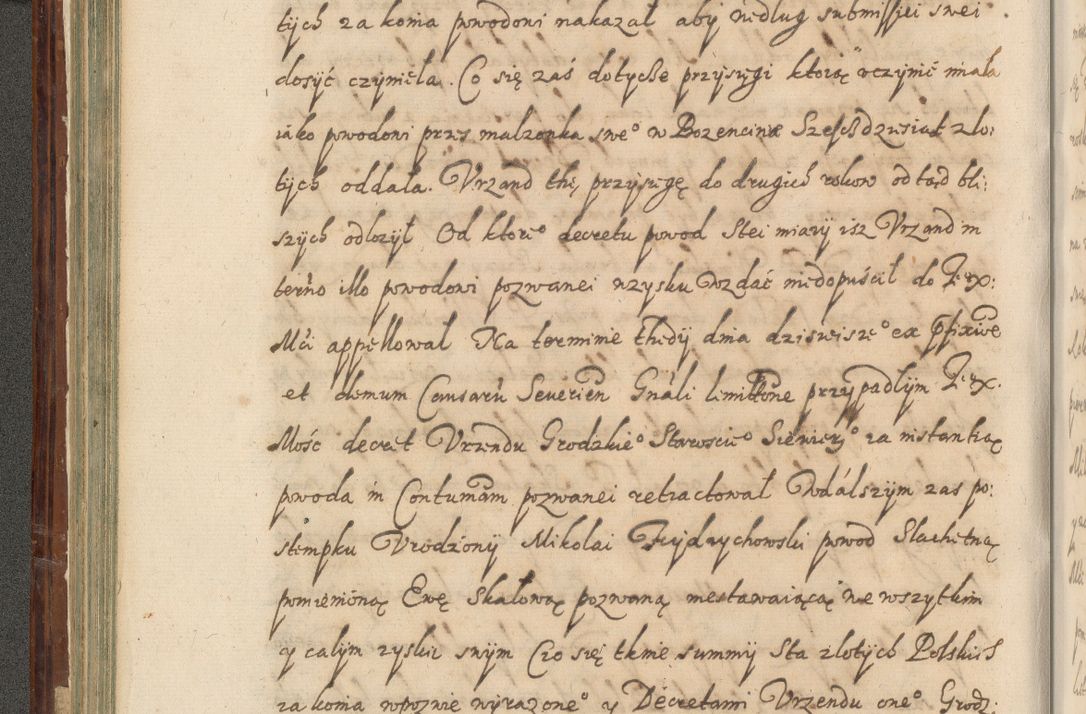 tÿch za konia powodoni nakazał abÿ według submissiei swei
dosÿć czyniéła. Co się zaś dotycze przÿsięgi ktorą uczynić miała
iako powodowi przes malzonka swe° w Pozenciniæ Szescdziesiat zło:
tÿch oddała. Vrząnd thę przÿsięgę do drugich rokow od tąd bli:
szÿch odłozÿł Od ktore° decretu powod Stei miarÿ isz Vrzand in
terno illo powodowi pozwanei wzysku wzdać niedopuścił do Jex:
Mći appellował Na terminie thedÿ dnia dzisieisze° ex pfixiõe
et demum Causarũ Seuerień Gnãli limittõne przÿpadłÿm Jex.
Mość decret Vrzendu Grodzkie° Staroscie° Siewierz° za instantią
powoda in Contumãm pozwanei retractował Wdálszÿm zas po:
stempku Vrodzonÿ Mikolai Fridrychowski powod Slachetną
pomienioną Ewę Skałową pozwaną niestawaiącą we wszytkim
ÿ całÿm zysku swÿm Czo się tknie summÿ Sta złotÿch Polskich
za konia wpozwie wyrazone° ÿ Decretami Vrzendu one° Grodz: